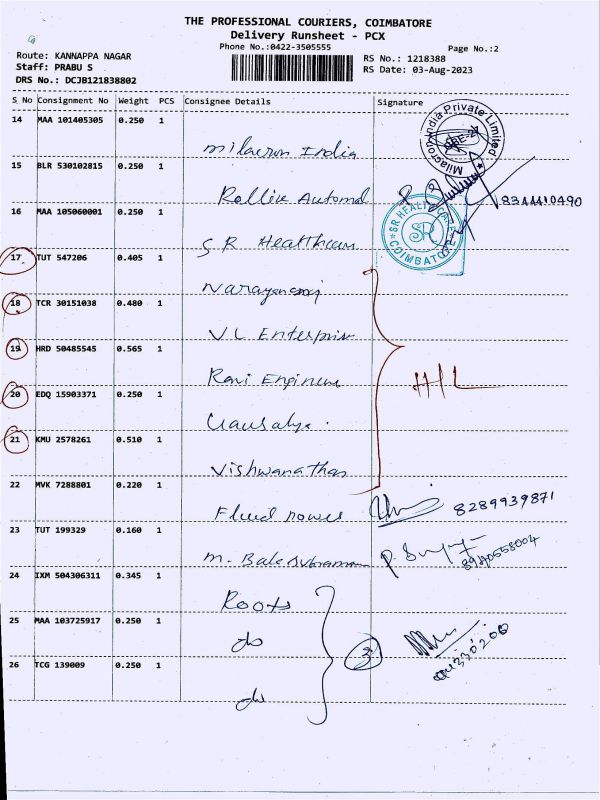 THE PROFESSIONAL COURIERS, COIMBATORE
Delivery Runsheet - PCX
Phone No.:0422-3505555
Page No.:2
Route: KANNAPPA NAGAR
RS No.: 1218388
Staff: PRABU S
RS Date: 03-Aug-2023
DRS No.: DCJB121838802
S No Consignment No Weight PCS Consignee Details Signature
14 MAA 101405305 0.250 1
Milacron India
Milacron India Private Limited
15 BLR 530102815 0.250 1
Rollix Automal
8344410490
16 MAA 105060001 0.250 1
S.R Healthcare
SR HEALTHCARE
SR
COIMBATORE
17 TUT 547206 0.405 1
Narayanasamy
18 TCR 30151038 0.480 1
VL Enterprise
19 HRD 50485545 0.565 1
Ravi Engineers
H/L
20 EDQ 15903371 0.250 1
Causalya.
21 KMU 2578261 0.510 1
Vishwanathan
22 MVK 7288801 0.220 1
Fluid power
8289939871
23 TUT 199329 0.160 1
M. Balasubraman
24 IXM 504306311 0.345 1
Roots
25 MAA 103725917 0.250 1
do
3
26 TCG 139009 0.250 1
do